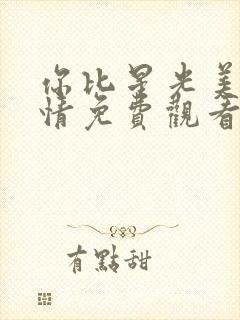 你比星光美
情免費觀看
有點甜